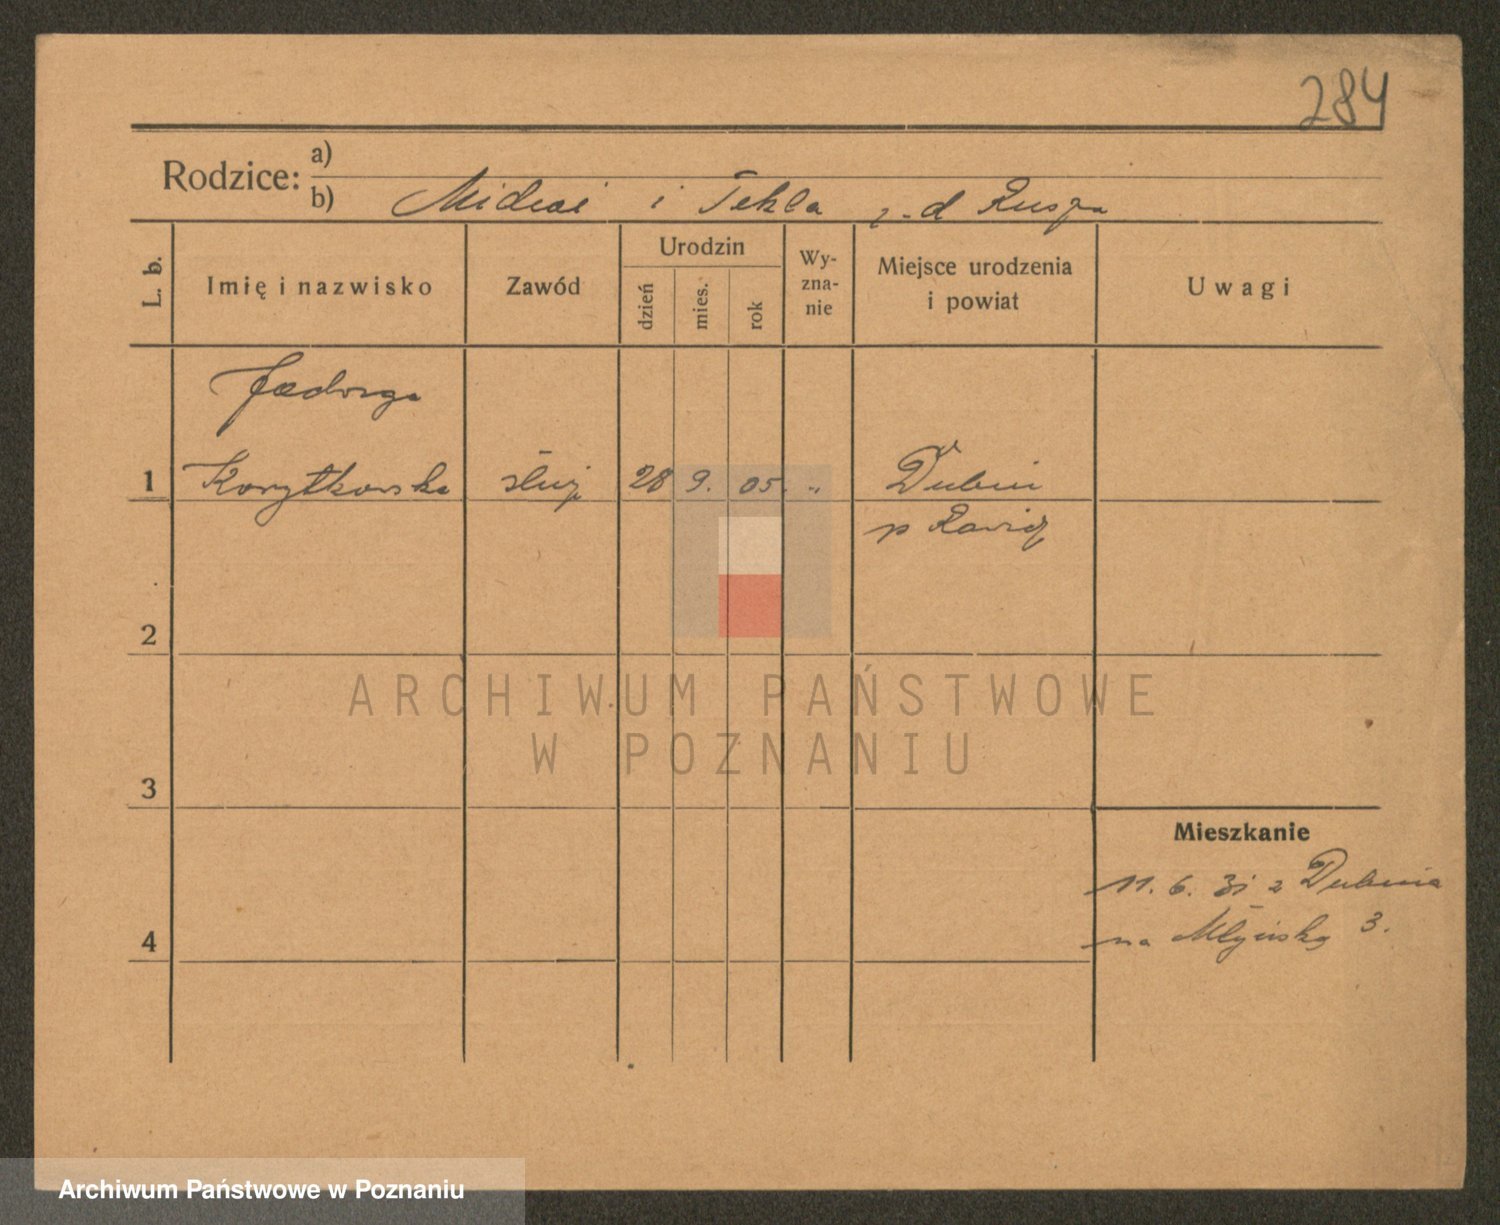 284
Rodzice: a)
b) Michał i Tekla z-d
L. b. Imię i nazwisko Zawód Urodzin dzień mies. rok Wy-zna-nie Miejsce urodzenia i powiat Uwagi
Jadwiga
1 Korytkowska służ 28 9. 05. " Dubin
p Rawicz
2
ARCHIWUM PAŃSTWOWE
W POZNANIU
3
Mieszkanie
11. 6. 31 z Dubina
4 na Młyńską 3.
Archiwum Państwowe w Poznaniu